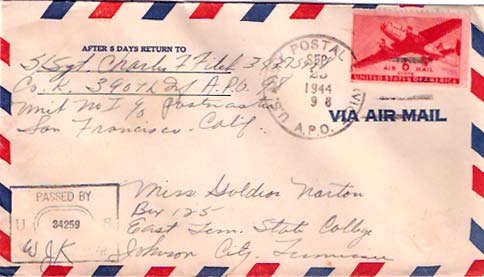 AFTER 5 DAYS RETURN TO
S/Sgt. Charles
Co. K, 390th Inf A.P.O. 98
Unit No 1 % Postmaster
San Francisco. Calif.
U.S. ARMY POSTAL SERVICE
SEP
1944
98
A.P.O.
AIR 6 MAIL
CENTS
UNITED STATES OF AMERICA
VIA AIR MAIL
PASSED BY
U S
34259
WJK
Miss Goldia Norton
Box 125
East Tenn. State College
Johnson City, Tennessee